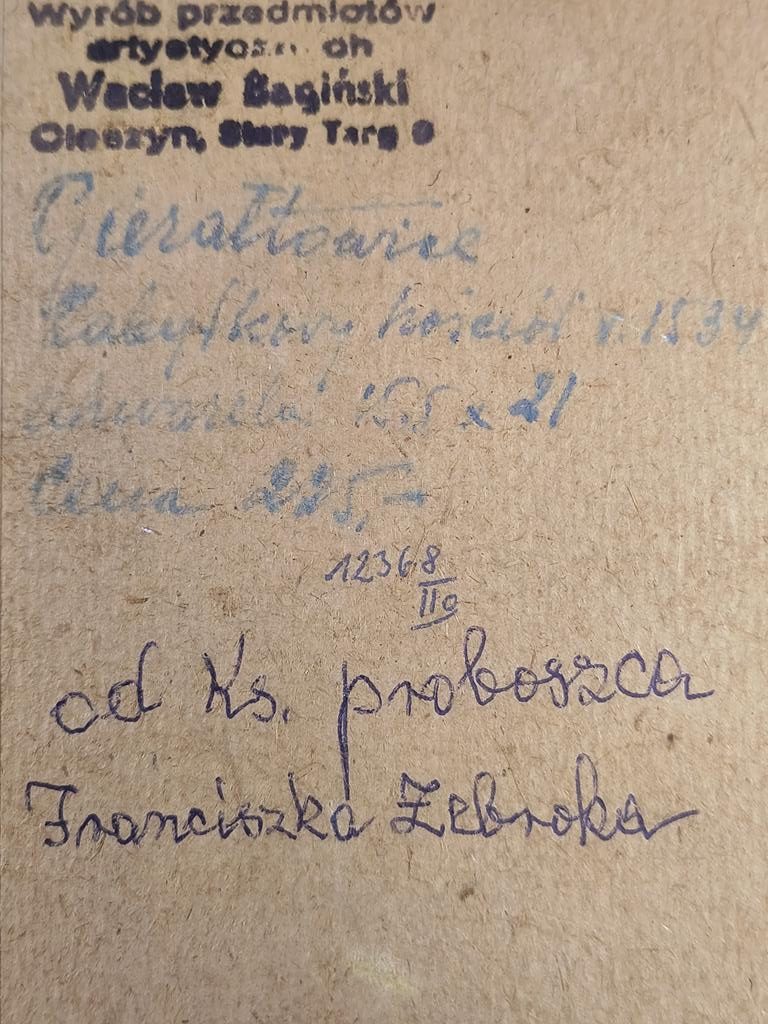 Wyrób przedmiotów
artystycznych
Wacław Bagiński
Cieszyn, Stary Targ
Gierałtowice
Zabytkowy kościół r. 1534
15.5 x 21
Cena 225,-
12368
IIo
od Ks. proboszca
Franciszka Żebroka